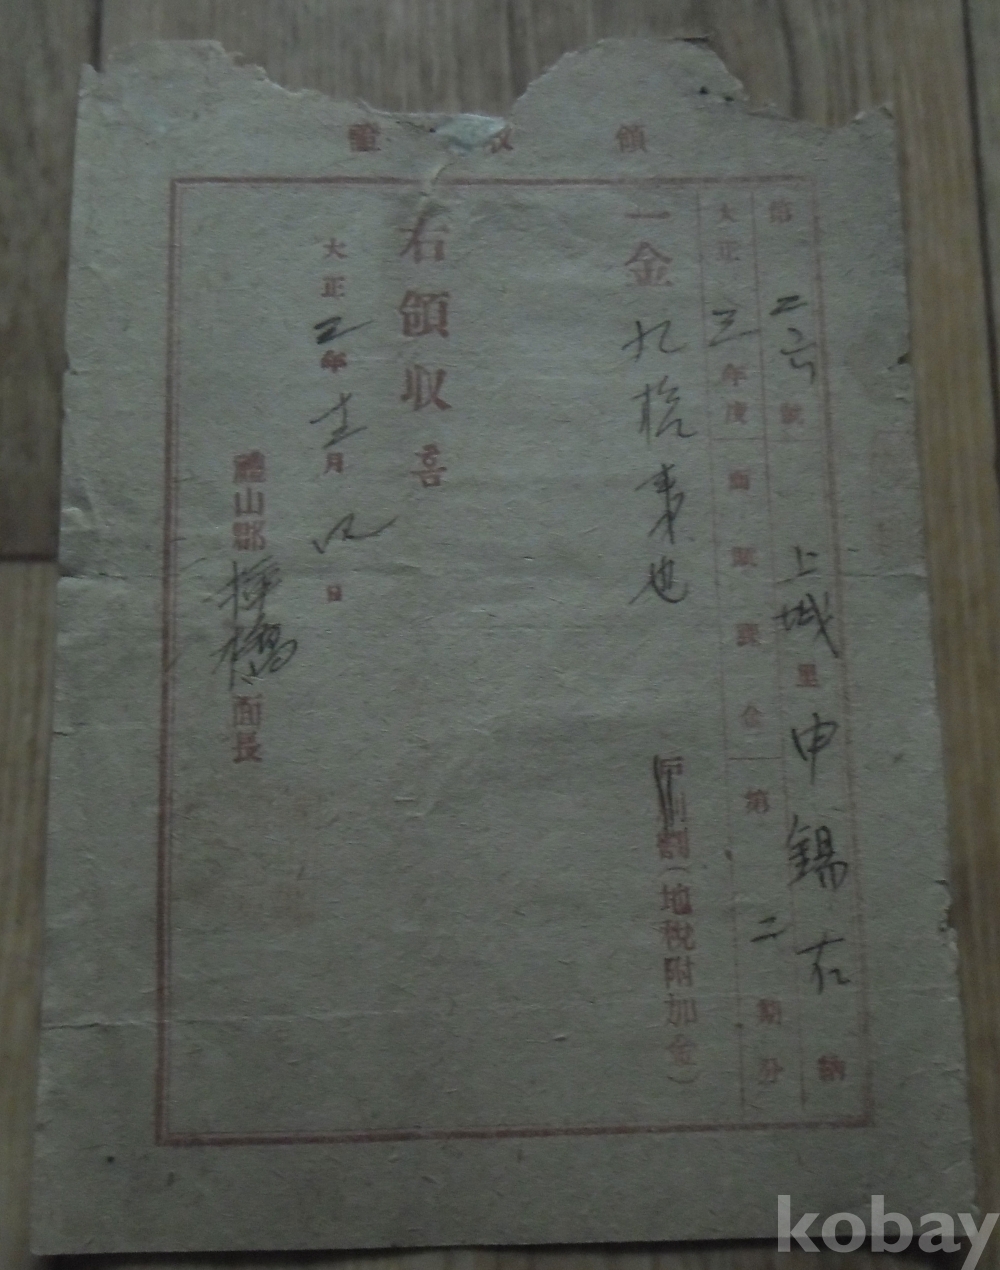 領收證
第二号號 上城里 申錫右 納
大正三年度 面賦課金 第二期分
一金九拾
也
戶別割(地稅附加金)
右領收홈
大正三年 月 日
禮山郡 挿橋 面長
kobay